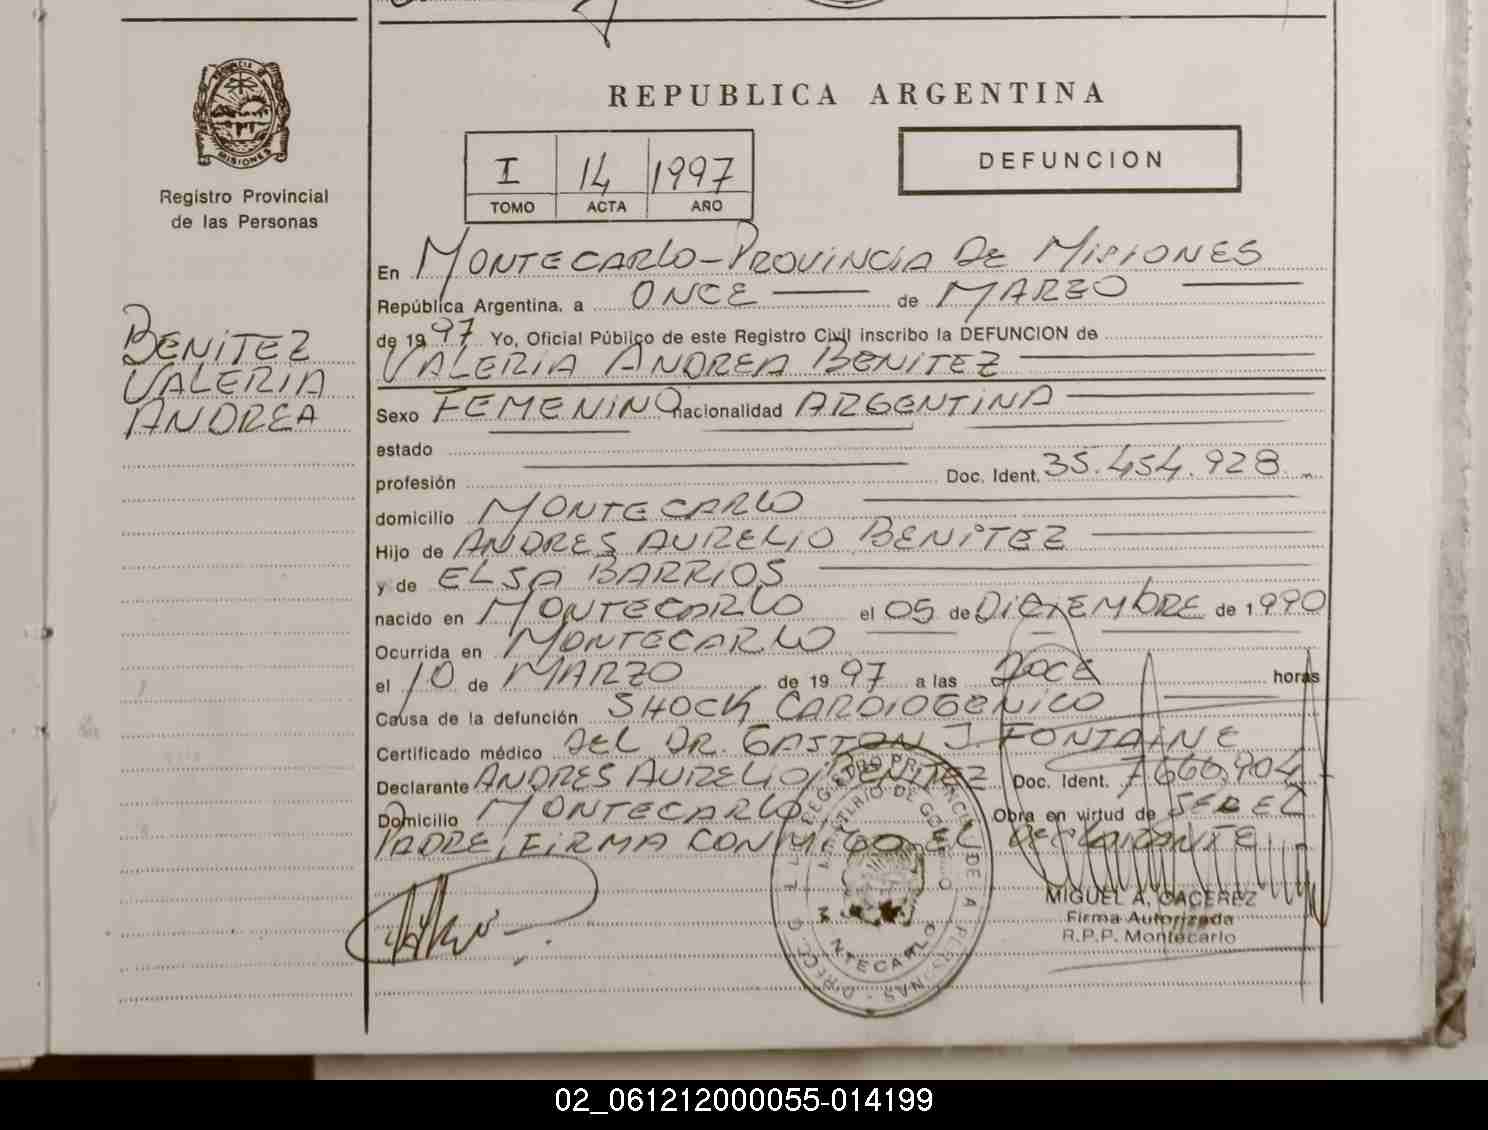 PROVINCIA DE
MISIONES
Registro Provincial
de las Personas
BENITEZ
VALERIA
ANDREA
REPUBLICA ARGENTINA
I 14 1997
TOMO ACTA AÑO
DEFUNCION
En MONTECARLO - PROVINCIA DE MISIONES
República Argentina, a ONCE de MARZO
de 1997 Yo, Oficial Público de este Registro Civil inscribo la DEFUNCION de
VALERIA ANDREA BENITEZ
Sexo FEMENINO nacionalidad ARGENTINA
estado
profesión Doc. Ident. 35.454.928
domicilio MONTECARLO
Hijo de ANDRES AURELIO BENITEZ
y de ELSA BARRIOS
nacido en MONTECARLO el 05 de DICIEMBRE de 1.990
Ocurrida en MONTECARLO
el 10 de MARZO de 1997 a las DOCE horas
Causa de la defunción SHOCK CARDIOGENICO
Certificado médico DEL DR. GASTON J. FONTAINE
Declarante ANDRES AURELIO BENITEZ Doc. Ident. 7.666.904
Domicilio MONTECARLO Obra en virtud de SER EL
PADRE, FIRMA CONMIGO EL DECLARANTE
MIGUEL A. CACEREZ
Firma Autorizada
R.P.P. Montecarlo
02_061212000055-014199